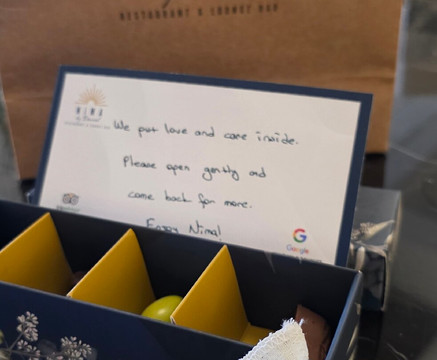 RESTAURANT & LOUNGE BAR
NIMA
We put love and care inside.
Please open gently and
come back for more.
Enjoy Nima!
Google